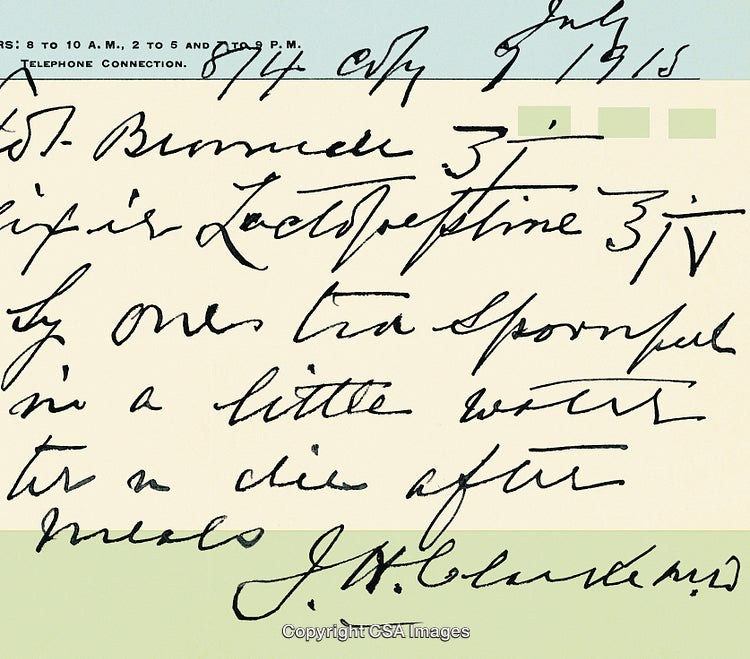 RS: 8 TO 10 A. M., 2 TO 5 AND 7 TO 9 P. M.
TELEPHONE CONNECTION.
July
874 copy 9 1915
Bromide ʒi
lixir Lactopeptine ʒiv
Sy one tea spoonful
in a little water
ter n die after
meals
J. H. Clarke M.D
Copyright CSA Images